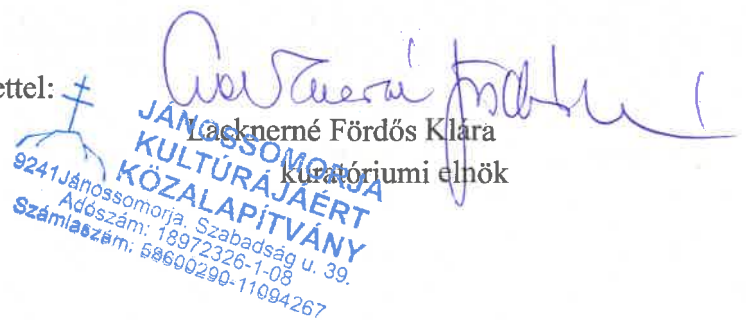 ettel:
Lacknerné Fördős
Lacknerné Fördős Klára
kuratóriumi elnök
JÁNOSSOMORJA
KULTÚRÁJÁÉRT
KÖZALAPÍTVÁNY
9241Jánossomorja, Szabadság u. 39.
Adószám: 18972326-1-08
Számlaszám: 58600290-11094267